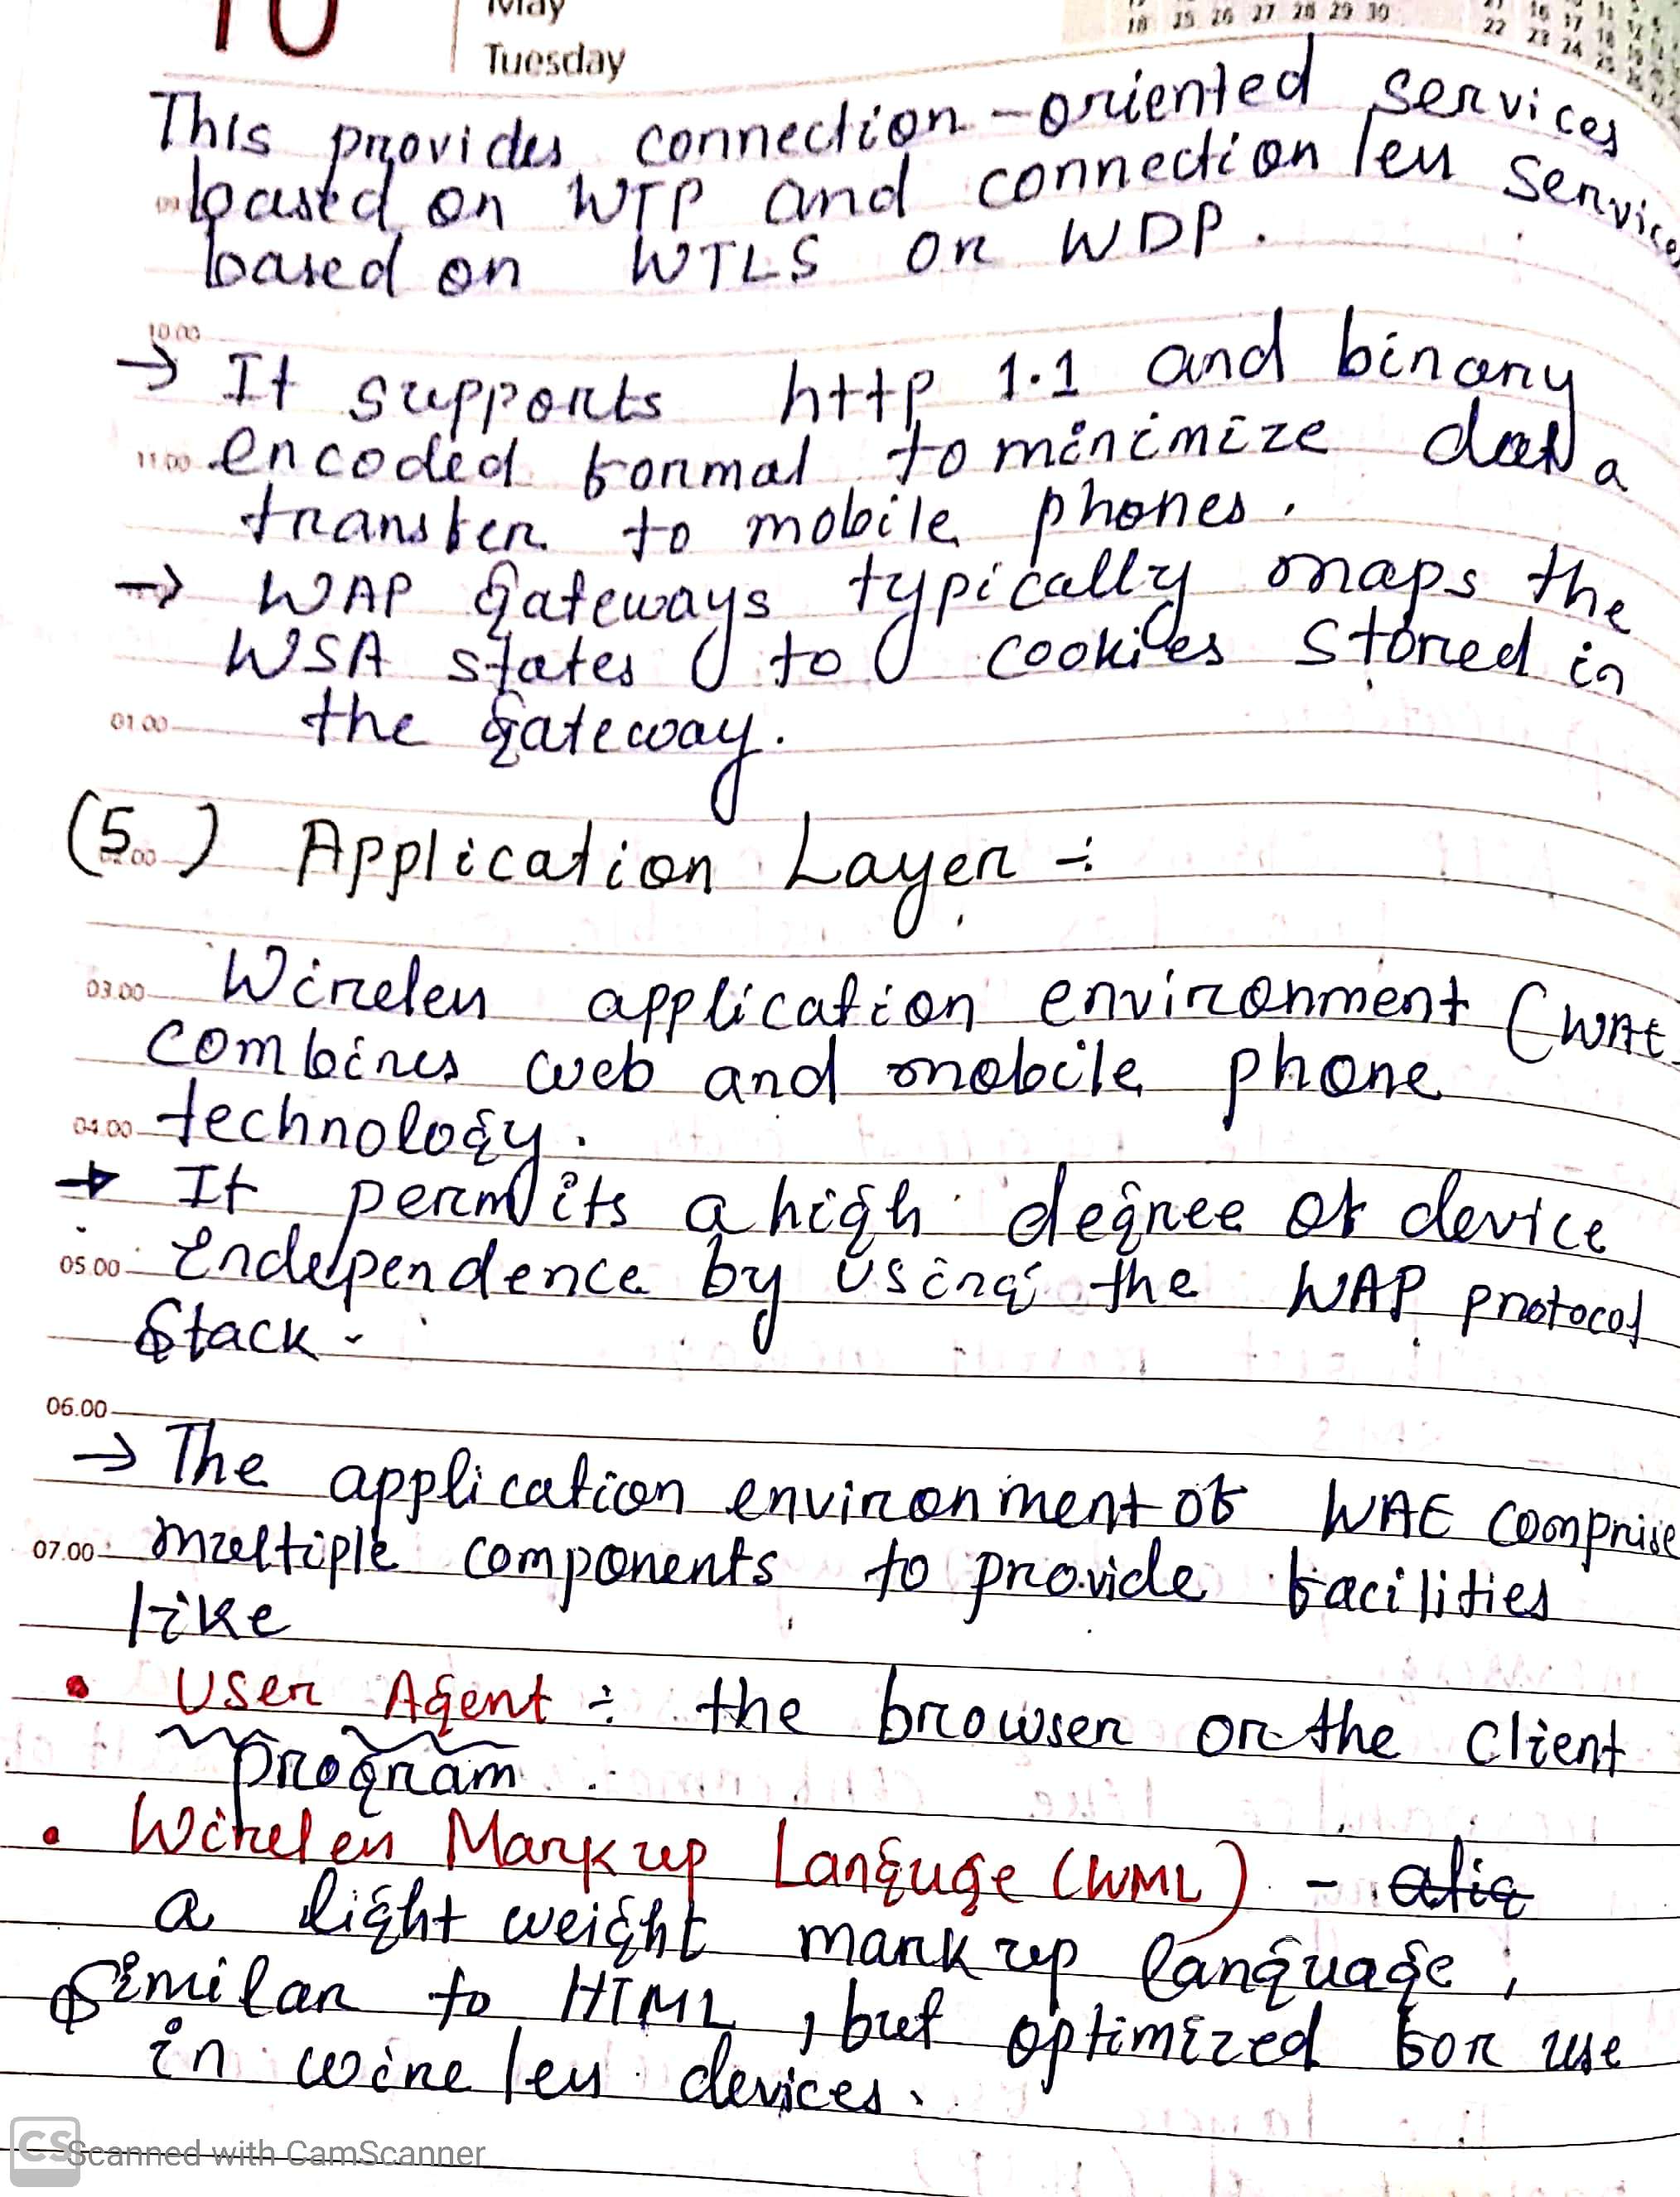 10
May
Tuesday
18 25 26 27 28 29 30
22 23 24
This provides connection-oriented services
based on WTP and connection less services
based on WTLS or WDP.
10.00
→ It supports http 1.1 and binary
11.00 encoded format to minimize data
transfer to mobile phones.
→ WAP Gateways typically maps the
WSA states to cookies stored in
01.00 the gateway.
(5.) Application Layer :-
02.00
03.00 Wireless application environment (WAE
combines web and mobile phone
04.00 technology.
→ It permits a high degree of device
05.00 independence by using the WAP protocol
Stack.
06.00
→ The application environment of WAE comprise
07.00 multiple components to provide facilities
like
• User Agent :- the browser or the client
program.
• Wireless Markup Languge (WML) -
a light weight mark up language,
Similar to HTML, but optimized for use
in wireless devices.
CS Scanned with CamScanner